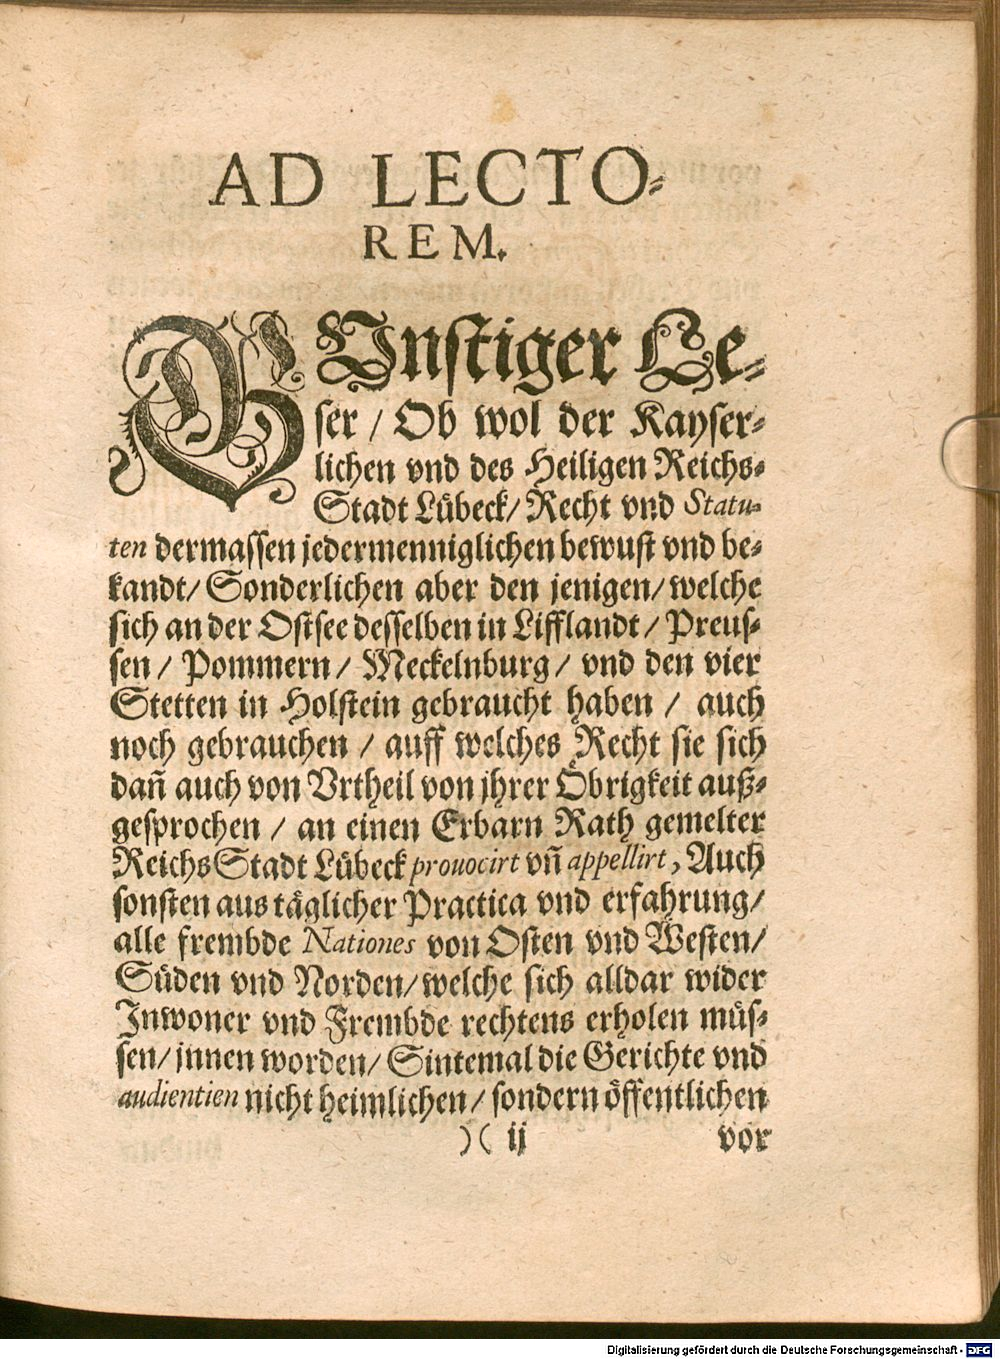 AD LECTO-
REM.
GUnstiger Le-
ser / Ob wol der Kayser-
lichen vnd des Heiligen Reichs-
Stadt Lübeck / Recht vnd Statu-
ten dermassen jedermenniglichen bewust vnd be-
kandt / Sonderlichen aber den jenigen / welche
sich an der Ostsee desselben in Lifflandt / Preus-
sen / Pommern / Meckelnburg / vnd den vier
Stetten in Holstein gebraucht haben / auch
noch gebrauchen / auff welches Recht sie sich
dañ auch von Vrtheil von jhrer Öbrigkeit auß-
gesprochen / an einen Erbarn Rath gemelter
ReichsStadt Lübeck prouocirt vñ appellirt, Auch
sonsten aus täglicher Practica vnd erfahrung /
alle frembde Nationes von Osten vnd Westen /
Süden vnd Norden / welche sich alldar wider
Inwoner vnd Frembde rechtens erholen müs-
sen / jnnen worden / Sintemal die Gerichte vnd
audientien nicht heimlichen / sondern öffentlichen
)( ij vor
Digitalisierung gefördert durch die Deutsche Forschungsgemeinschaft - DFG